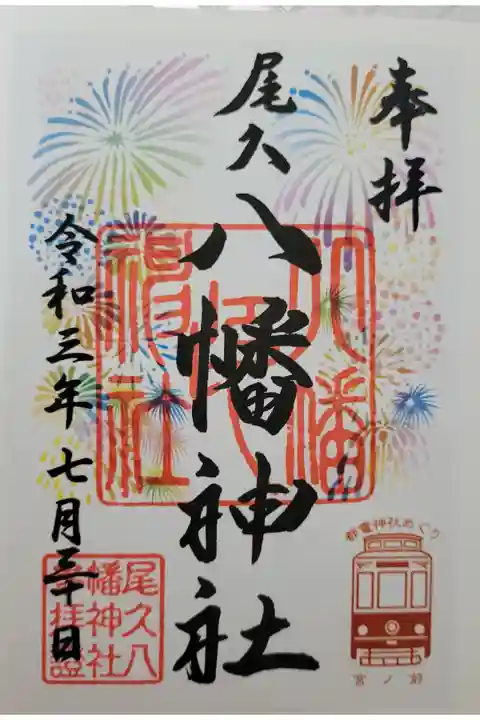 奉拝
尾久
八幡神社
令和三年七月三十日
八幡
神社
尾久八
幡神社
拝證
都電神社めぐり
宮ノ前